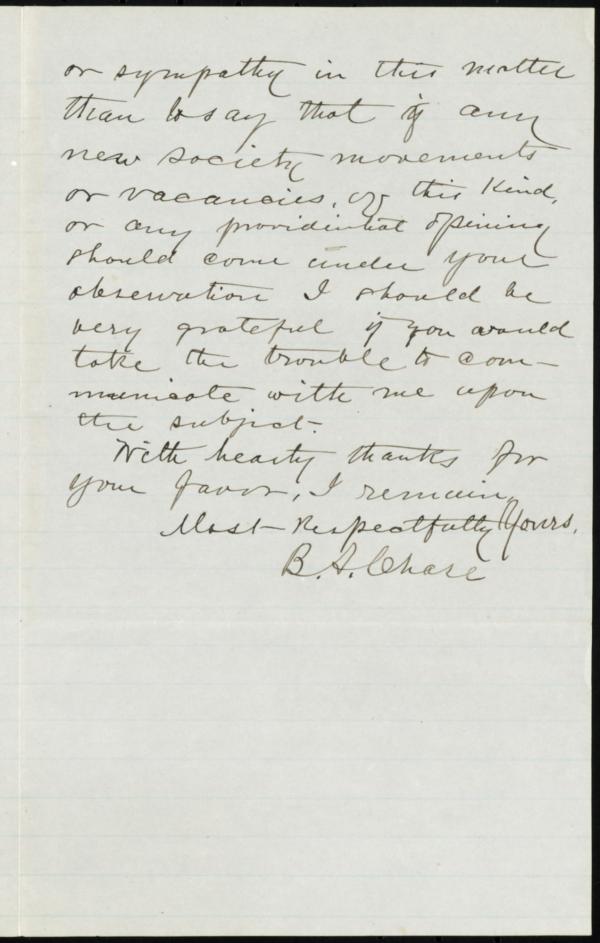 or sympathy in this matter
than to say that if any
new society movements
or vacancies, of this kind,
or any providintial opining
should come under your
observation I should be
very grateful if you would
take the trouble to com-
municate with me upon
the subject.
With hearty thanks for
your favor, I remain,
Most Respectfully Yours,
B. A. Chase